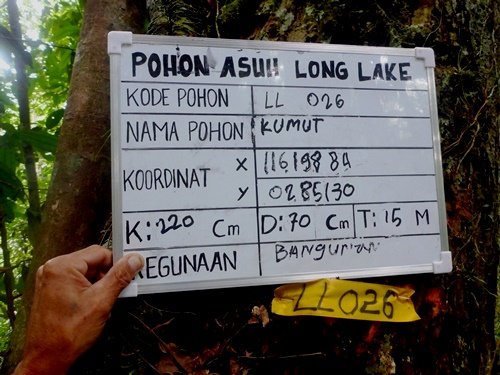 POHON ASUH LONG LAKE
KODE POHON LL 026
NAMA POHON KUMUT
KOORDINAT X 116.1988A
Y 02.85130
K: 220 Cm D: 70 Cm T: 15 M
KEGUNAAN BANGUNAN
LL026